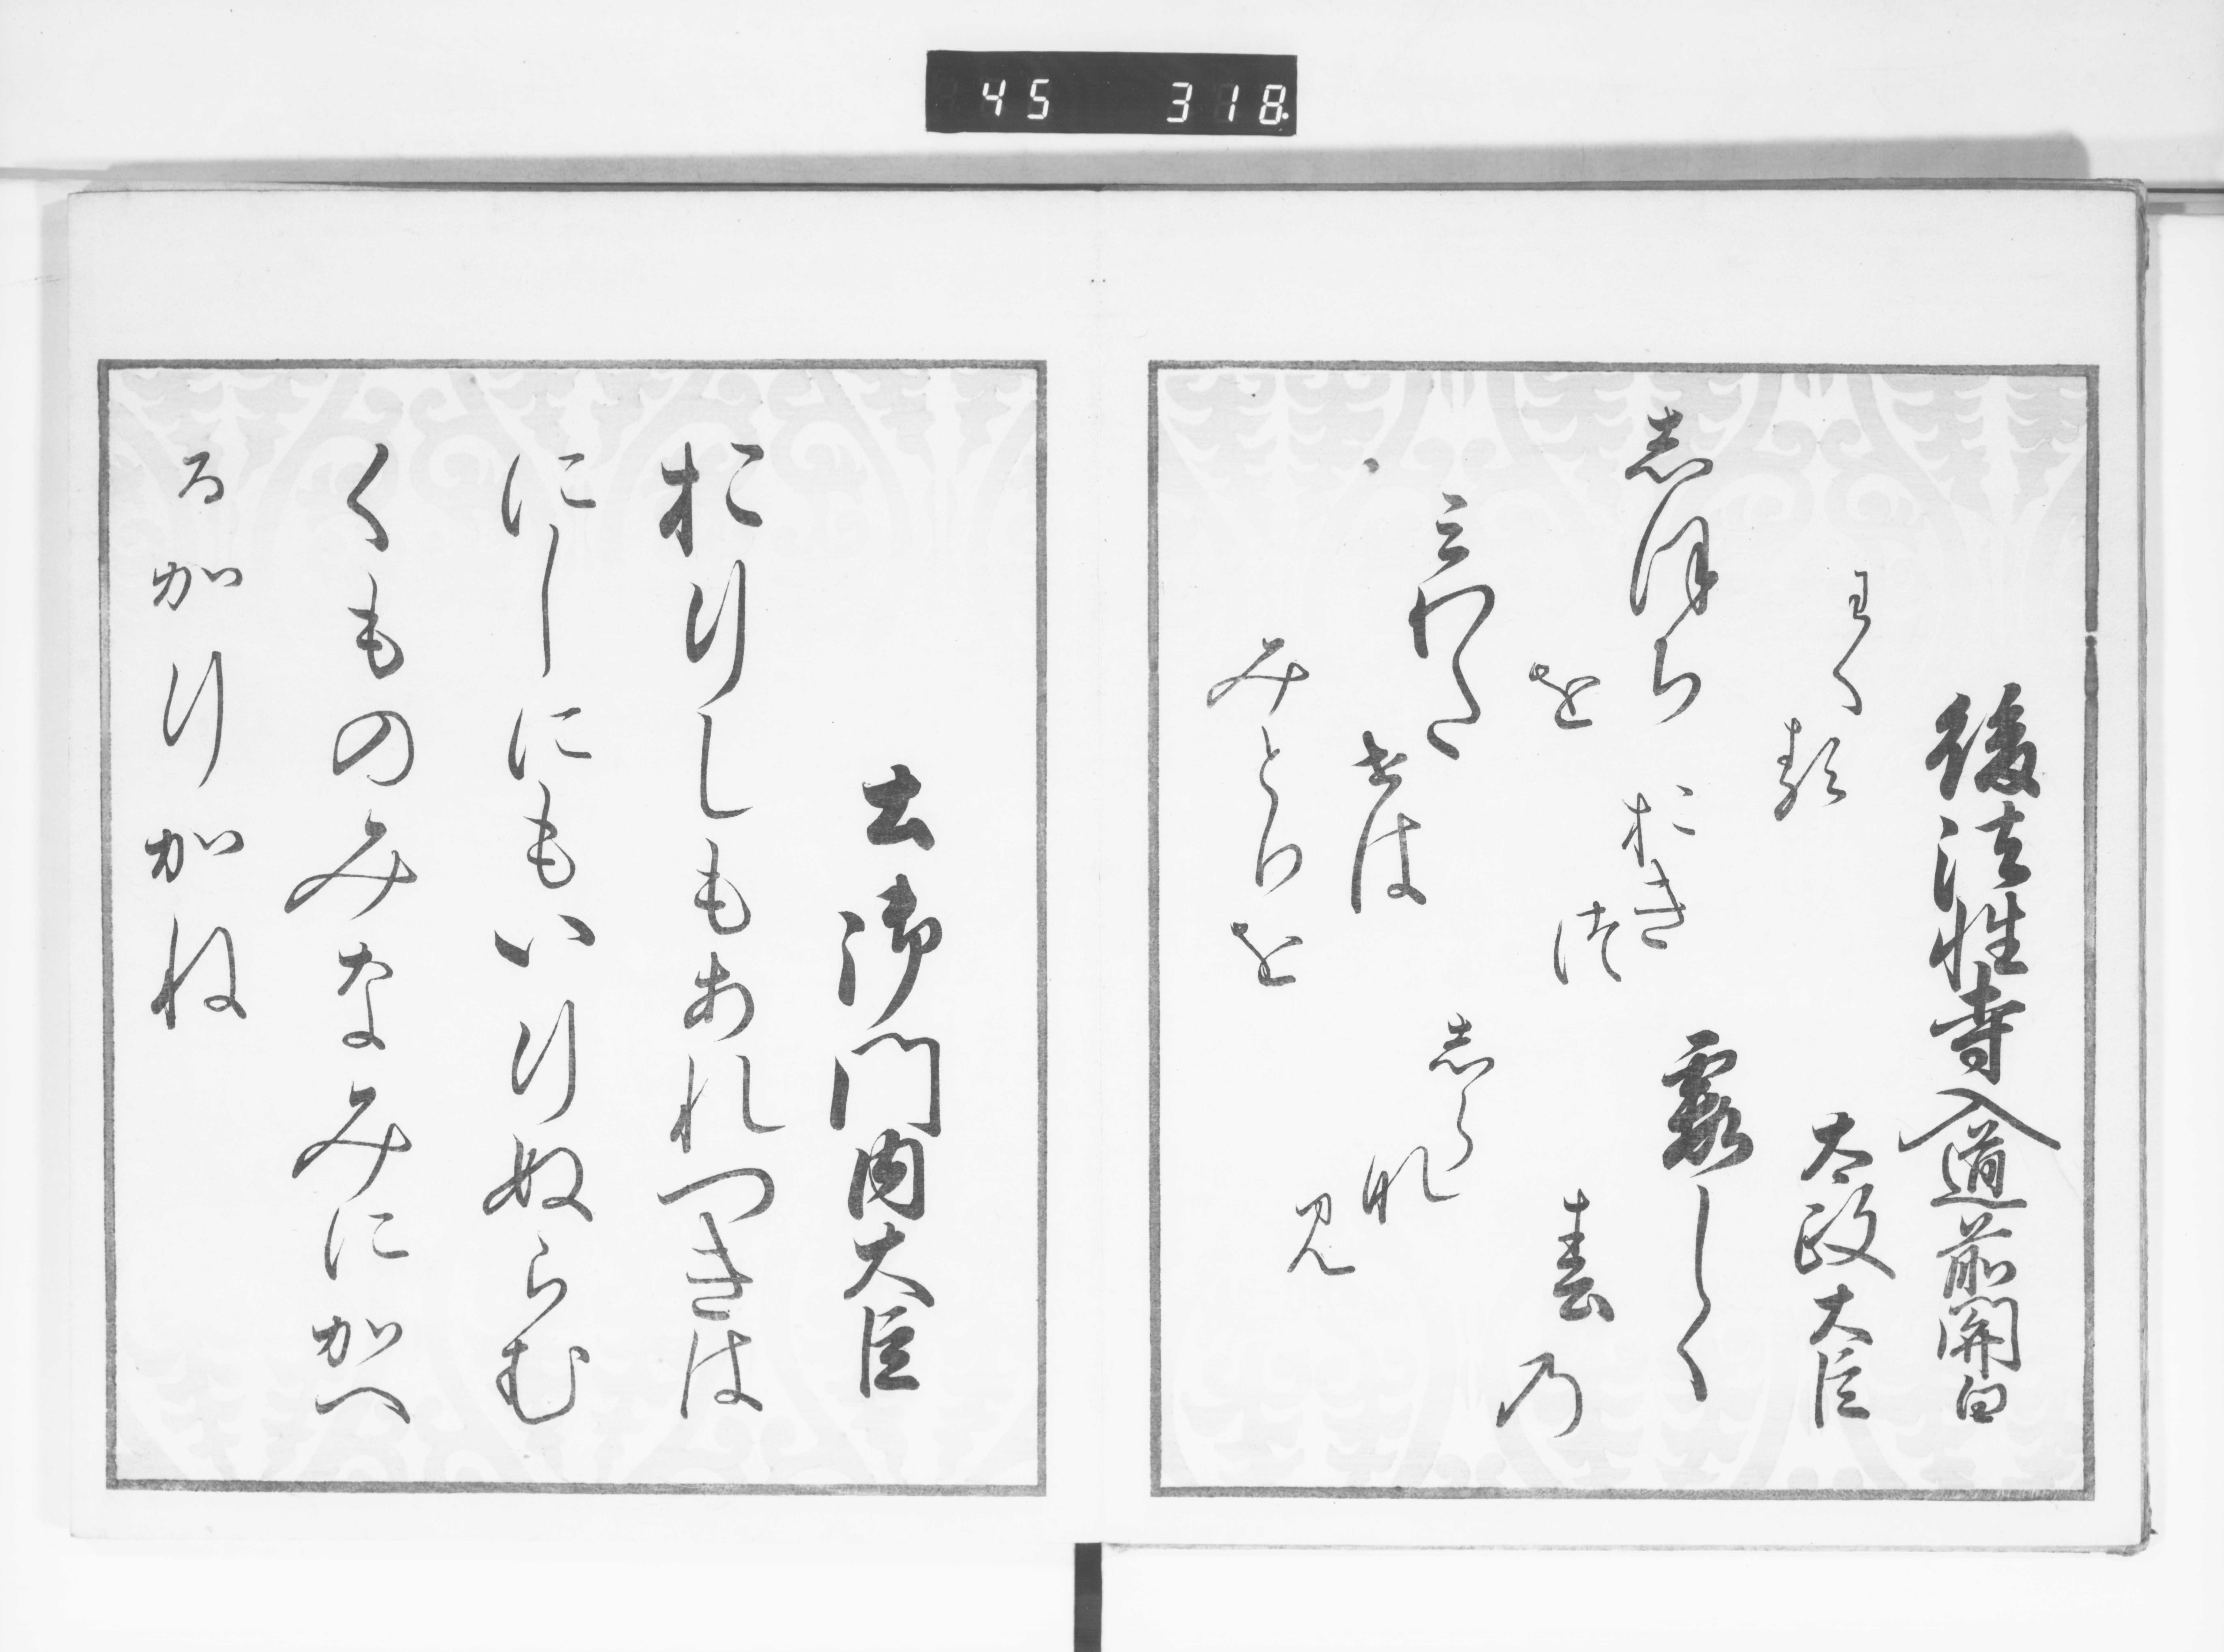 45 318
後法性寺入道前関白
太政大臣
霞しく
春乃
志ほち
を
三わた
せは
みとりを
王くる
おき
津
志らな
見
土御門内大臣
おりしもあれつきは
にしにもいりぬらむ
くものみなみにかへ
るかりかね